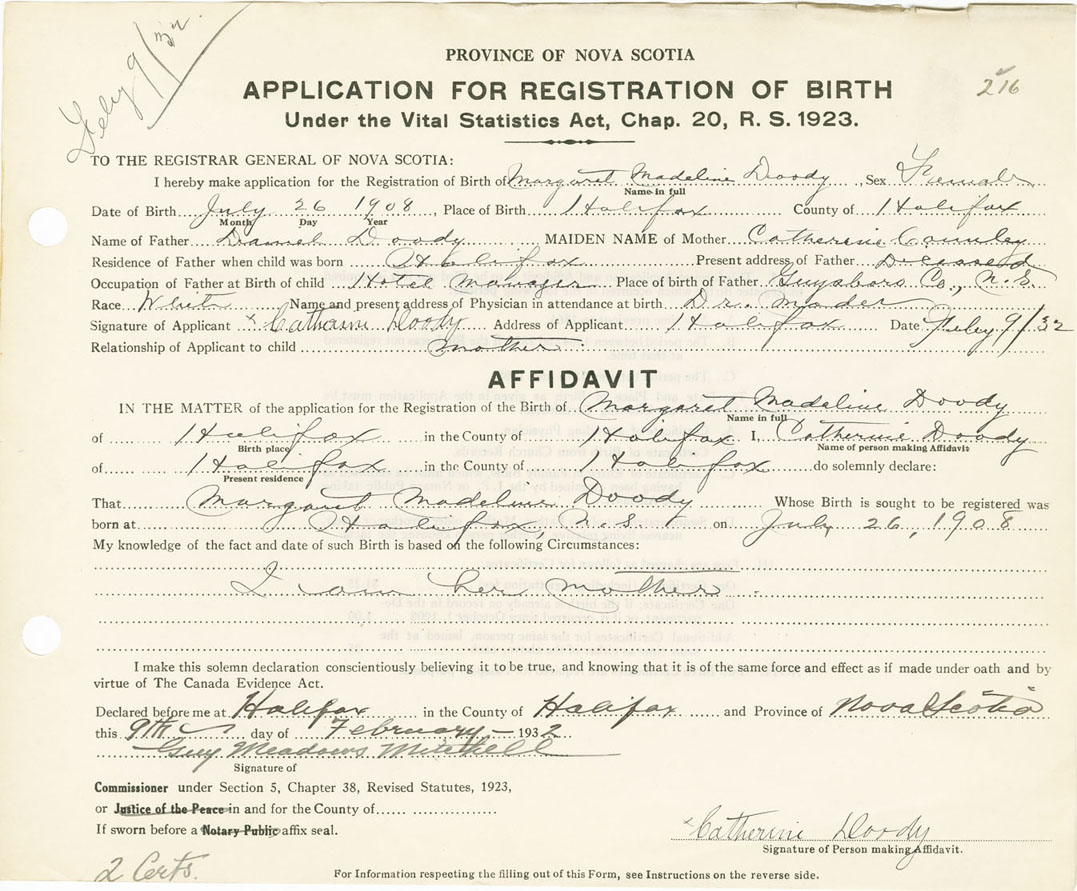 Feby 9/32
216
PROVINCE OF NOVA SCOTIA
APPLICATION FOR REGISTRATION OF BIRTH
Under the Vital Statistics Act, Chap. 20, R. S. 1923.
TO THE REGISTRAR GENERAL OF NOVA SCOTIA:
I hereby make application for the Registration of Birth of Margaret Madeline Doody, Sex Female
Name in full
Date of Birth July 26 1908, Place of Birth Halifax County of Halifax
Month Day Year
Name of Father Daniel Doody MAIDEN NAME of Mother Catherine
Residence of Father when child was born Halifax Present address of Father Deceased
Occupation of Father at Birth of child Hotel Manager Place of birth of Father Guysboro Co., N.S
Race White Name and present address of Physician in attendance at birth Dr. Mader
Signature of Applicant x Catharine Doody Address of Applicant Halifax Date Feby 9/32
Relationship of Applicant to child mother.
AFFIDAVIT
IN THE MATTER of the application for the Registration of the Birth of Margaret Madeline Doody
Name in full
of Halifax in the County of Halifax. I, Catherine Doody
Birth place Name of person making Affidavit
of Halifax in the County of Halifax do solemnly declare:
Present residence
That Margaret Madeline Doody Whose Birth is sought to be registered was
born at Halifax, N.S. on July 26, 1908
My knowledge of the fact and date of such Birth is based on the following Circumstances:
I am her mother.
I make this solemn declaration conscientiously believing it to be true, and knowing that it is of the same force and effect as if made under oath and by
virtue of The Canada Evidence Act.
Declared before me at Halifax in the County of Halifax and Province of Nova Scotia
this 9th day of February 1932
Guy Meadows Mitchell
Signature of
Commissioner under Section 5, Chapter 38, Revised Statutes, 1923,
or Justice of the Peace in and for the County of
If sworn before a Notary Public affix seal.
x Catherine Doody
Signature of Person making Affidavit.
2 Certs.
For Information respecting the filling out of this Form, see Instructions on the reverse side.